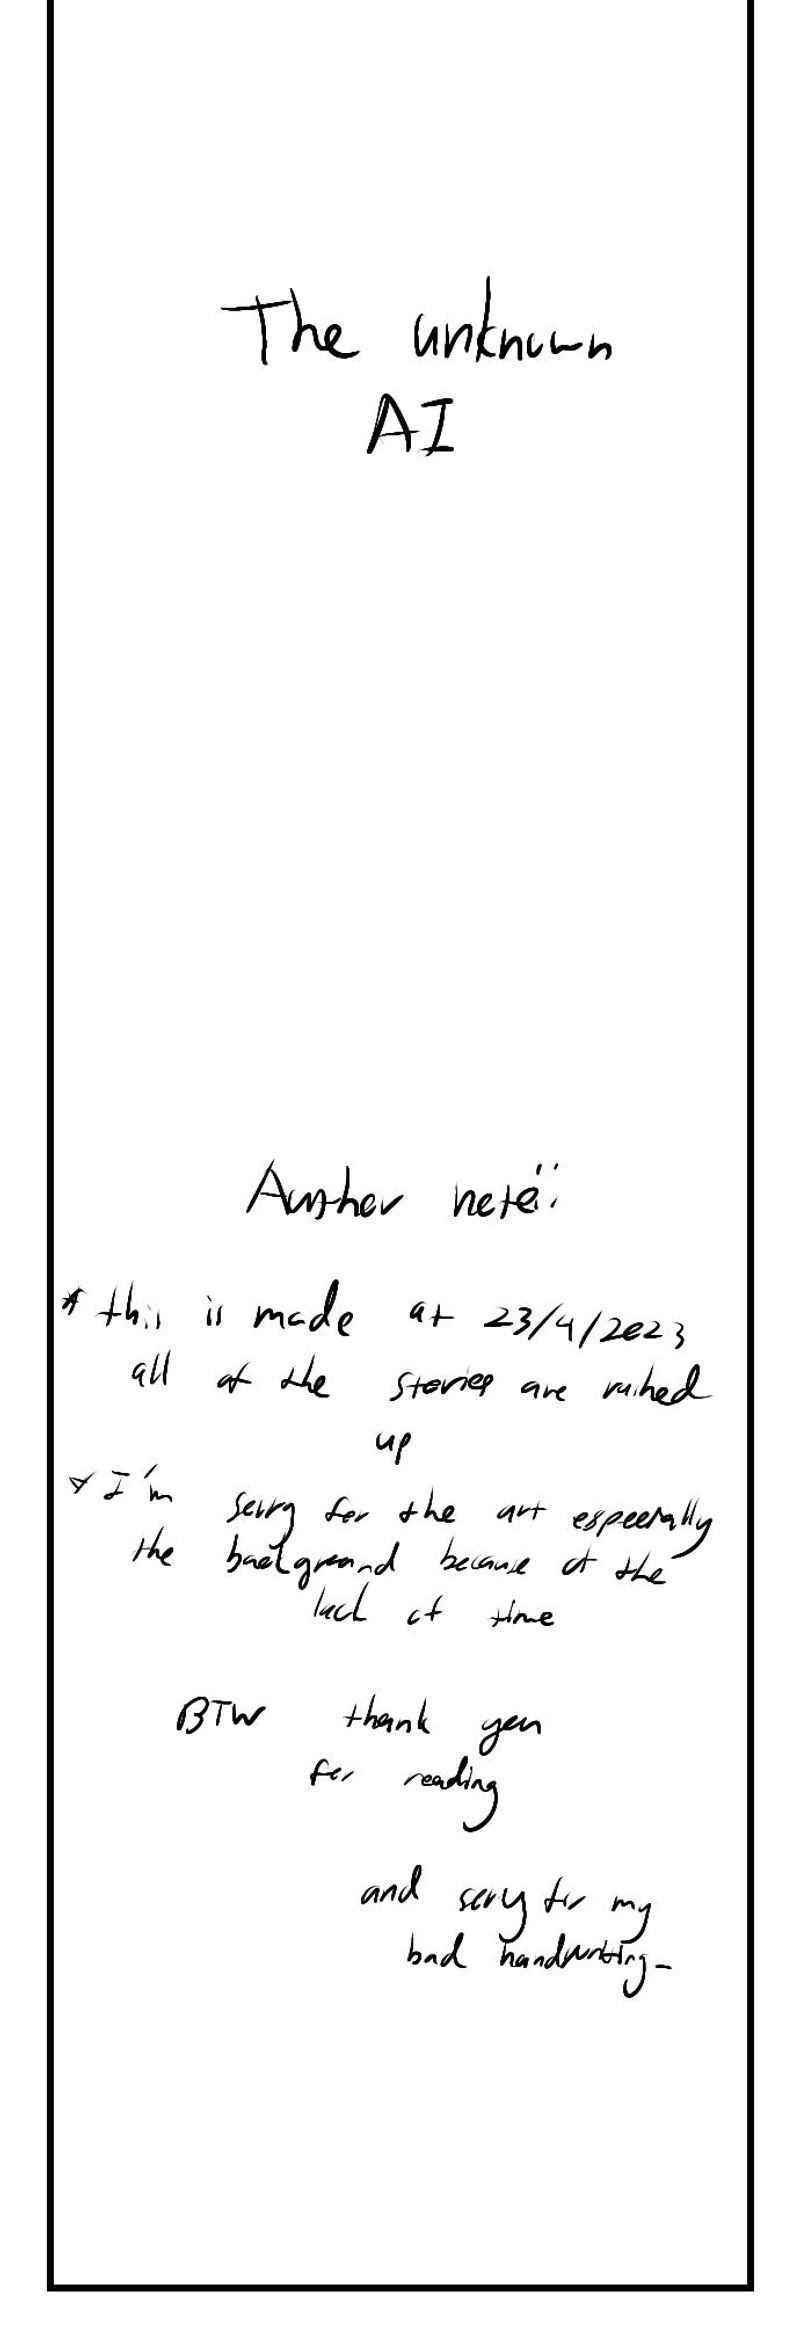 The unknown
AI
Auther note:
* this is made at 23/4/2023
all of the stories are
up
* I'm sorry for the art especially
the background because of the
lack of time
BTW thank you
for reading
and sorry for my
bad handwriting-